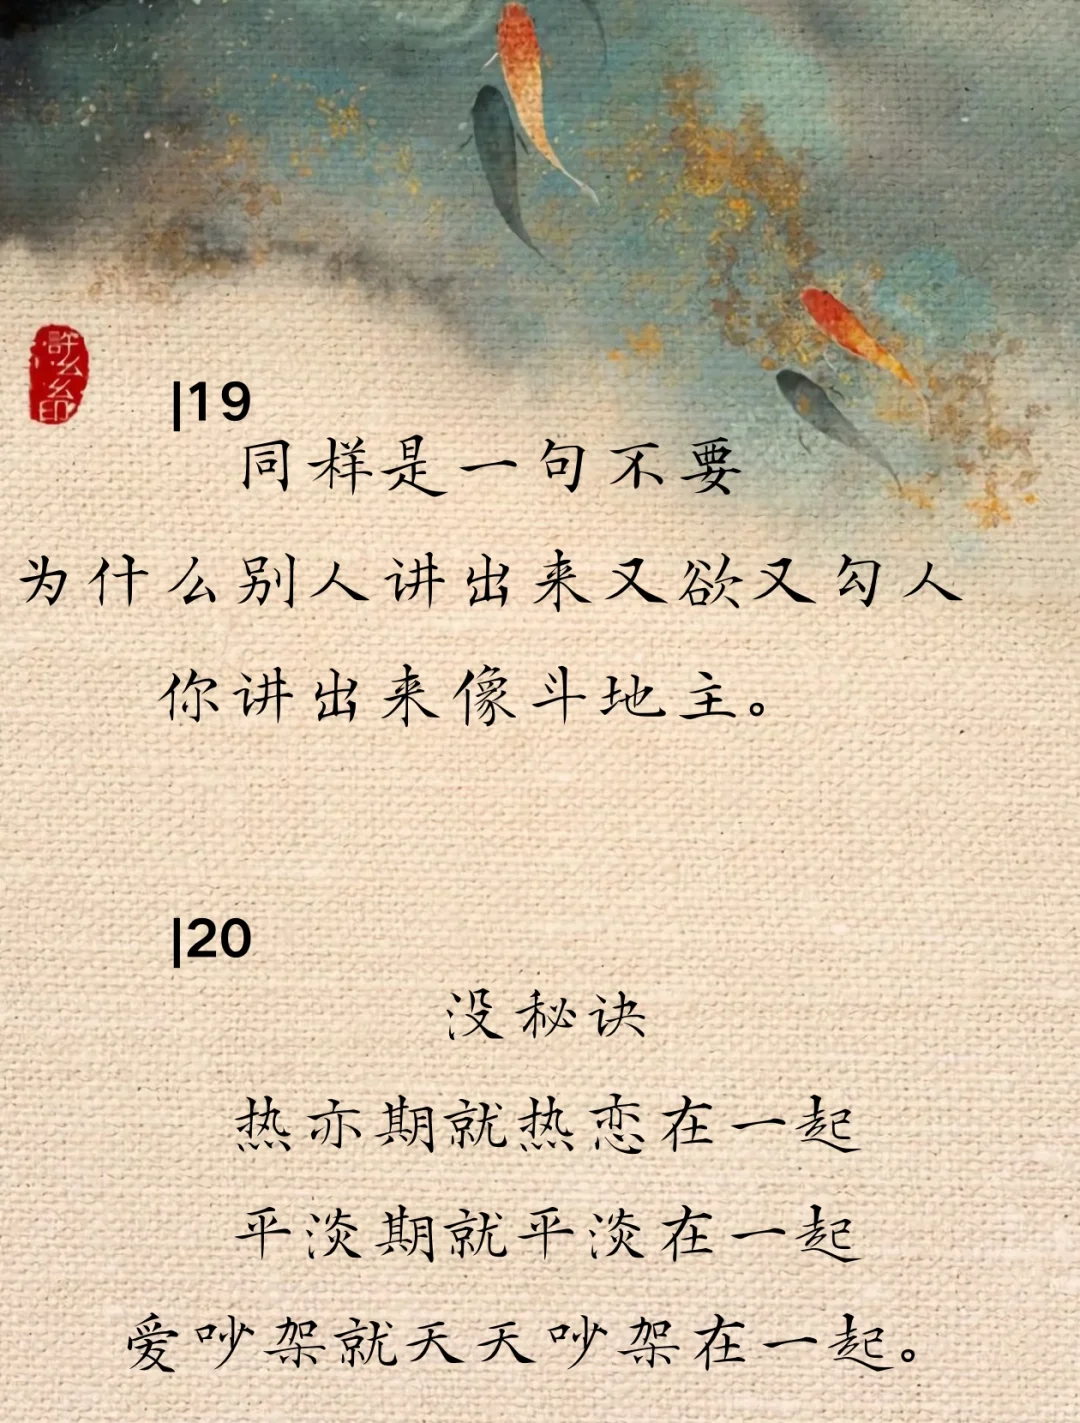 許么么印
|19
同样是一句不要
为什么别人讲出来又欲又勾人
你讲出来像斗地主。
|20
没秘诀
热亦期就热恋在一起
平淡期就平淡在一起
爱吵架就天天吵架在一起。